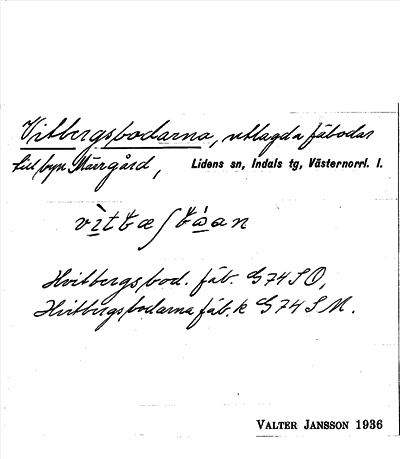 Vitbergsbodarna, utlagda fäbodar
till byn Märrgård, Lidens sn, Indals tg, Västernorrl. l.
Hvitbergsbod. fäb. G74SO,
Hvitbergsbodarna fäb.k G74SM.
VALTER JANSSON 1936